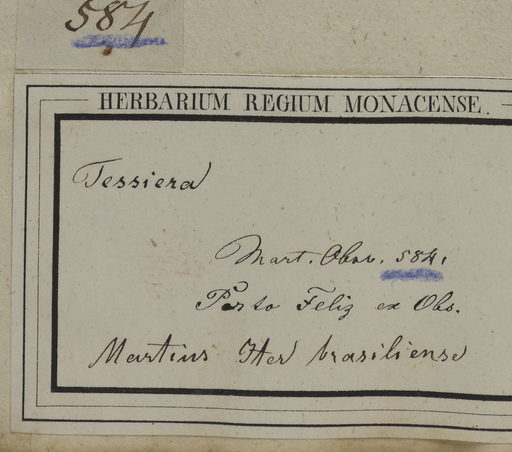 584
HERBARIUM REGIUM MONACENSE.
Tessiera
Mart. Obsv. 584.
Porto Feliz ex Obs.
Martius Iter brasiliense